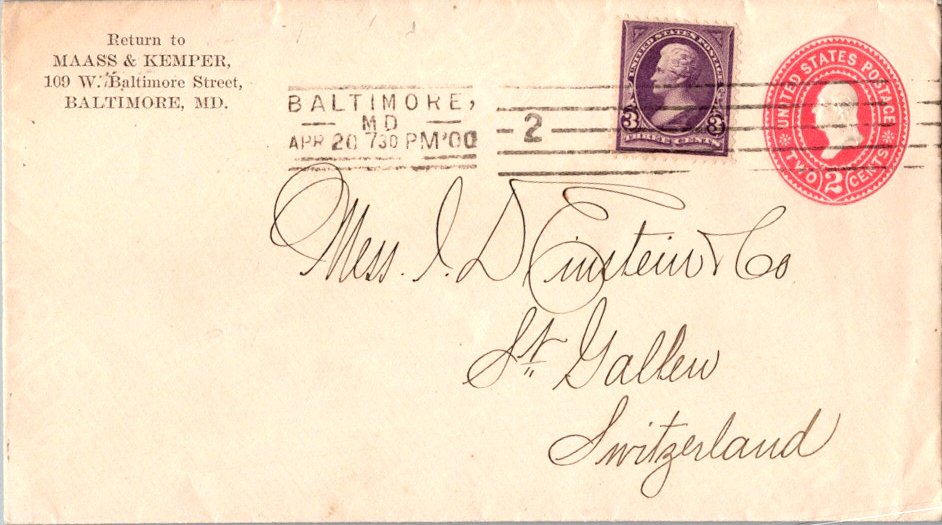 Return to
MAASS & KEMPER,
109 W. Baltimore Street,
BALTIMORE, MD.
BALTIMORE,
MD
APR 20 730 PM '00
2
UNITED STATES POSTAGE
3 3
THREE CENTS
UNITED STATES POSTAGE
TWO 2 CENTS
Mess. I. D Einstein & Co
St. Gallen
Switzerland